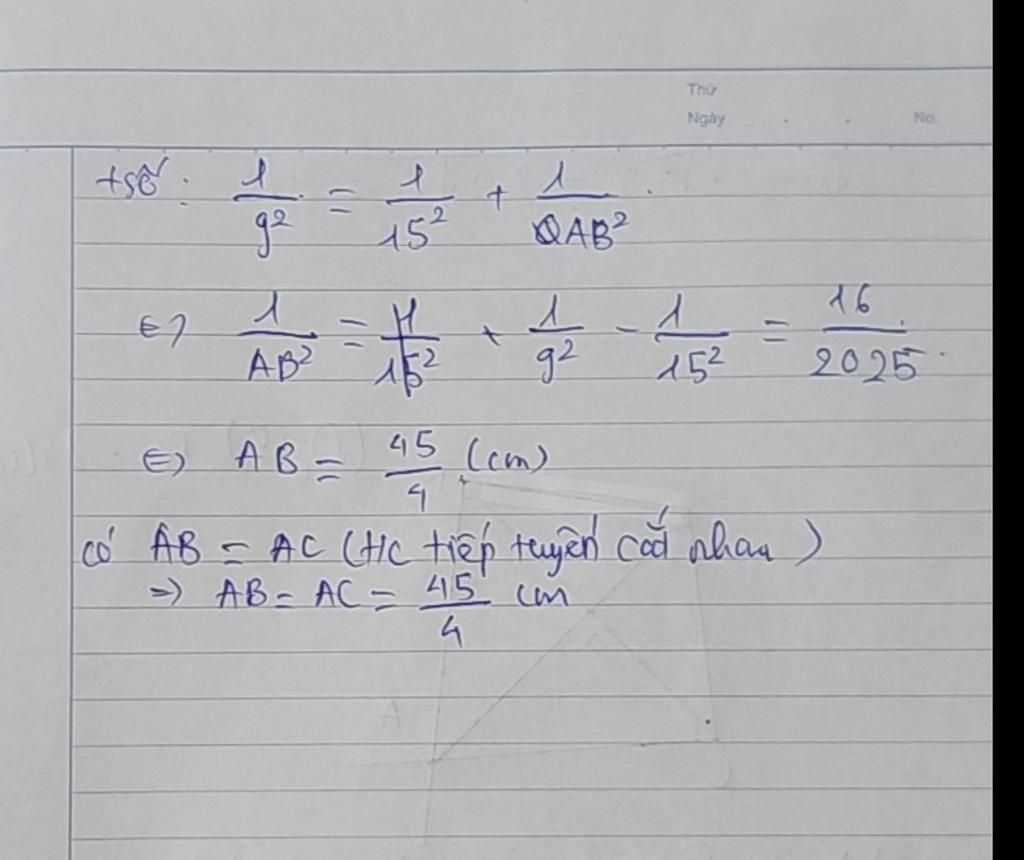 Thứ
Ngày . . No.
+số: 1/9² = 1/15² + 1/AB²
⇔ 1/AB² = 1/9² - 1/15² = 16/2025.
⇔ AB = 45/4 (cm)
có AB = AC (t/c tiếp tuyến cắt nhau)
⇒ AB = AC = 45/4 cm
A